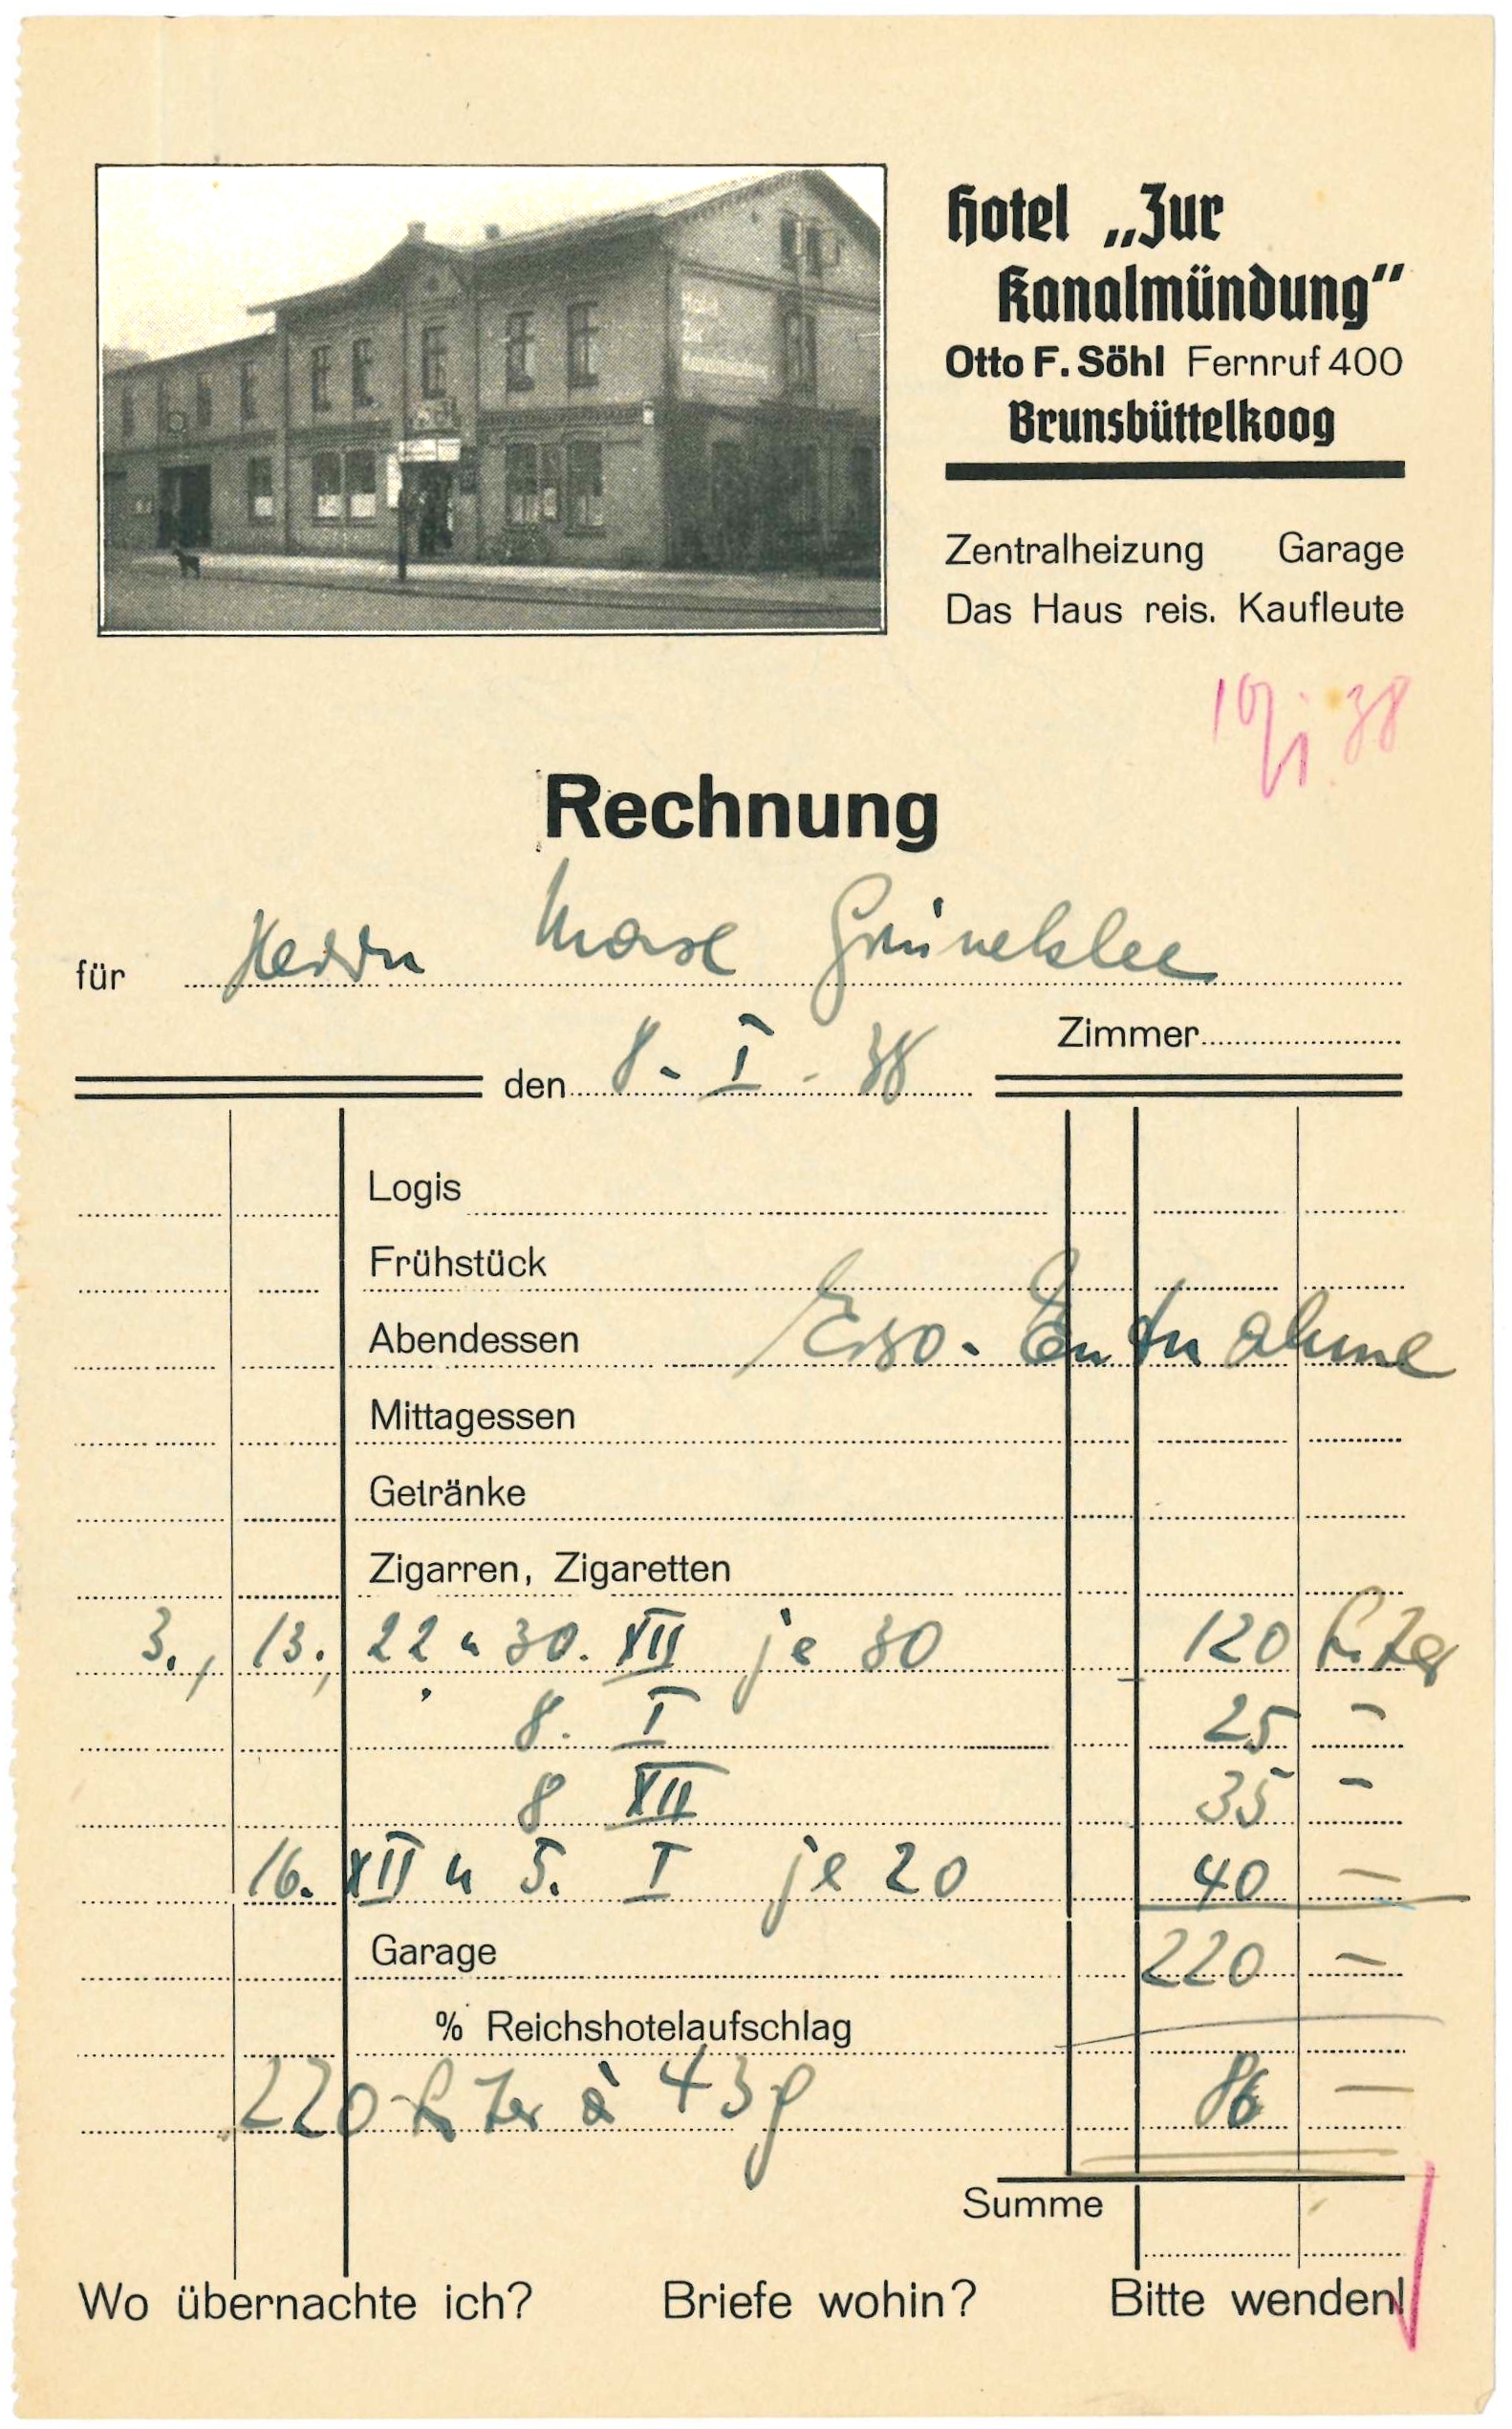 Hotel „Zur
Kanalmündung"
Otto F. Söhl Fernruf 400
Brunsbüttelkoog
Zentralheizung Garage
Das Haus reis. Kaufleute
Rechnung
für Herrn Max Grüneklee
Zimmer
den 8. I. 38
Logis
Frühstück
Abendessen Esso. Entnahme
Mittagessen
Getränke
Zigarren, Zigaretten
3., 13., 22 u 30. XII je 30 120 Liter
8. I 25 –
8 XII 35 –
16. XII u 5. I je 20 40 –
Garage 220 –
% Reichshotelaufschlag
220 Liter à 43 86 –
Summe
Wo übernachte ich? Briefe wohin? Bitte wenden!